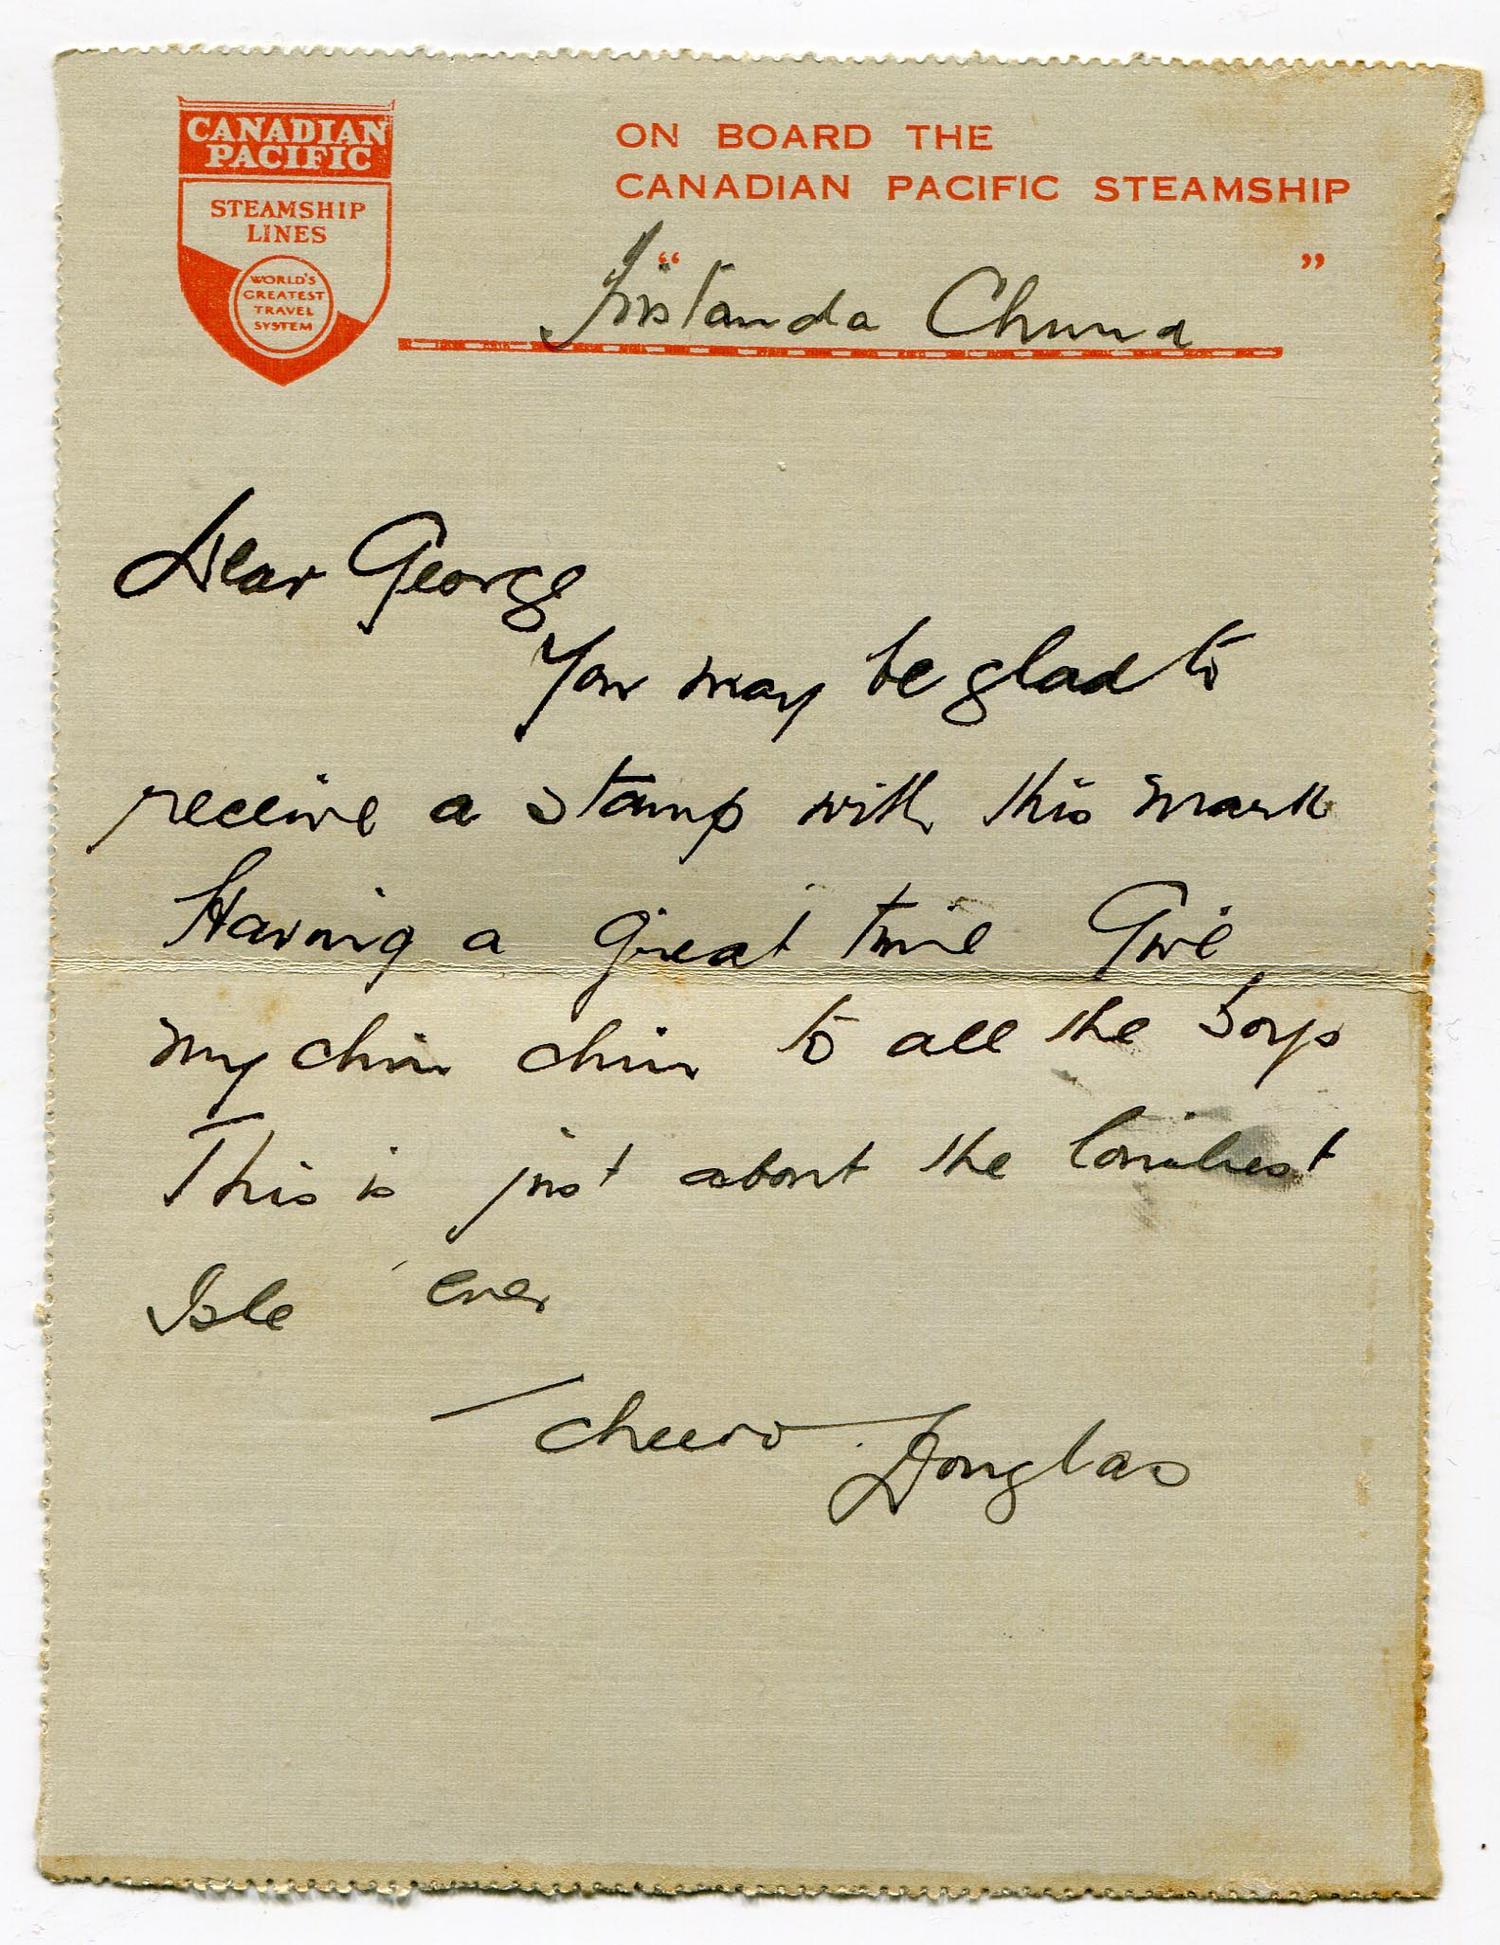 CANADIAN
PACIFIC
STEAMSHIP
LINES
WORLD'S
GREATEST
TRAVEL
SYSTEM
ON BOARD THE
CANADIAN PACIFIC STEAMSHIP
“ ”
Tristanda Chuna
Dear George
You may be glad to
receive a stamp with this mark
Having a great time Give
my chin chin to all the boys
This is just about the loneliest
Isle ever
Cheerio Douglas